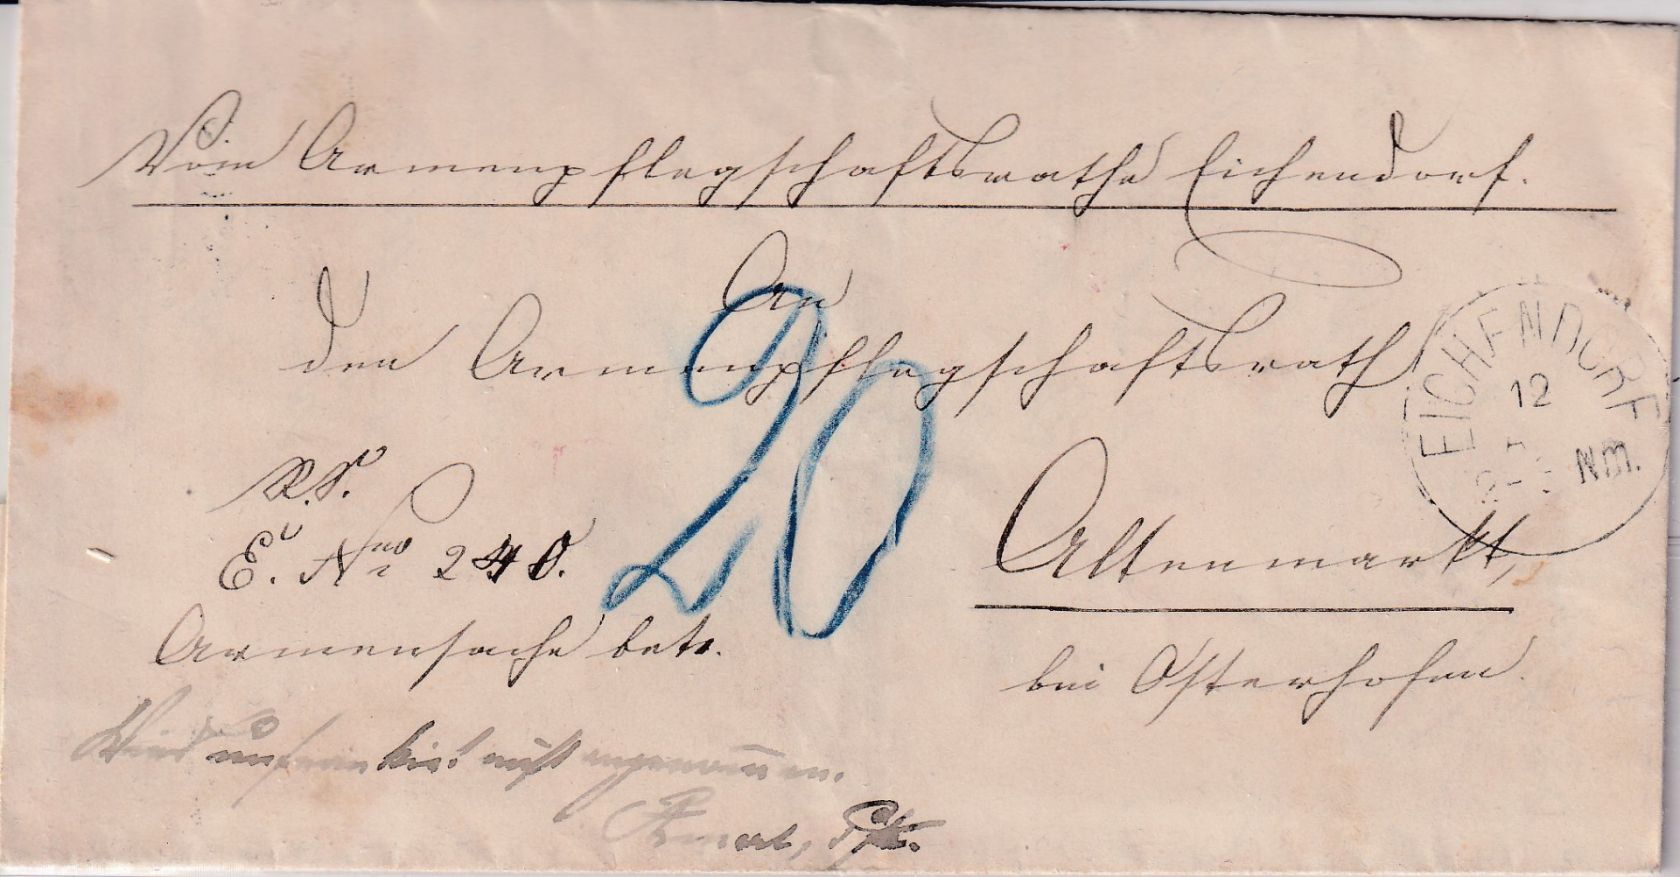 Vom Armenpflegschaftsrathe Eichendorf.
An
den Armenpflegschaftsrath
EICHENDORF
12
Nm.
20
R.S.
E. Nro 240.
Altenmarkt,
Armensache betr.
bei Osterhofen.
Wird unfrankirt nicht angenommen.